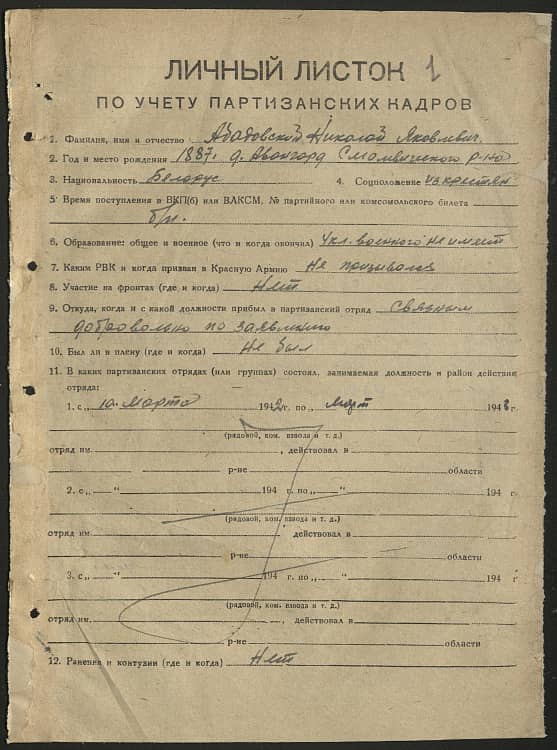 ЛИЧНЫЙ ЛИСТОК 1
ПО УЧЕТУ ПАРТИЗАНСКИХ КАДРОВ
1. Фамилия, имя и отчество Абадовской Николай Яковлевич
2. Год и место рождения 1887г. д. Авангард Смолевичского р-на
3. Национальность Белорус 4. Соцположение из крестьян
5. Время поступления в ВКП(б) или ВЛКСМ, № партийного или комсомольского билета
б/п.
6. Образование: общее и военное (что и когда окончил) 4 кл. военного не имеет
7. Каким РВК и когда призван в Красную Армию Не призывался
8. Участие на фронтах (где и когда) Нет
9. Откуда, когда и с какой должности прибыл в партизанский отряд Связным
добровольно по заявлению
10. Был ли в плену (где и когда) Не был
11. В каких партизанских отрядах (или группах) состоял, занимаемая должность и район действия
отряда:
1. с „10 Марта 1942 г. по „ Март 1943 г.
(рядовой, ком. взвода и т. д.)
отряд им. , действовал в
р-не области
2. с „ “ 194 г. по „ “ 194 г.
(рядовой, ком. взвода и т. д.)
отряд им. , действовал в
р-не области
3. с „ “ 194 г. по „ “ 194 г.
(рядовой, ком. взвода и т. д.)
отряд им. , действовал в
р-не области
12. Ранения и контузии (где и когда) Нет